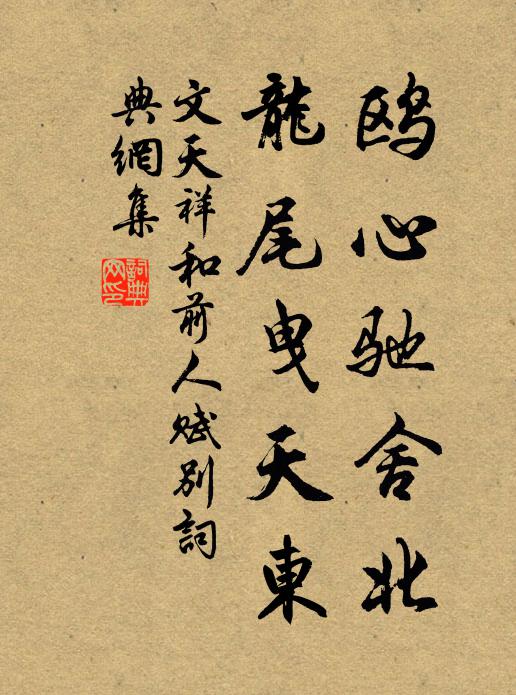 鸥心驰舍北
龍尾曳天東
文天祥和前人赋别詞
典網集
詞典網印